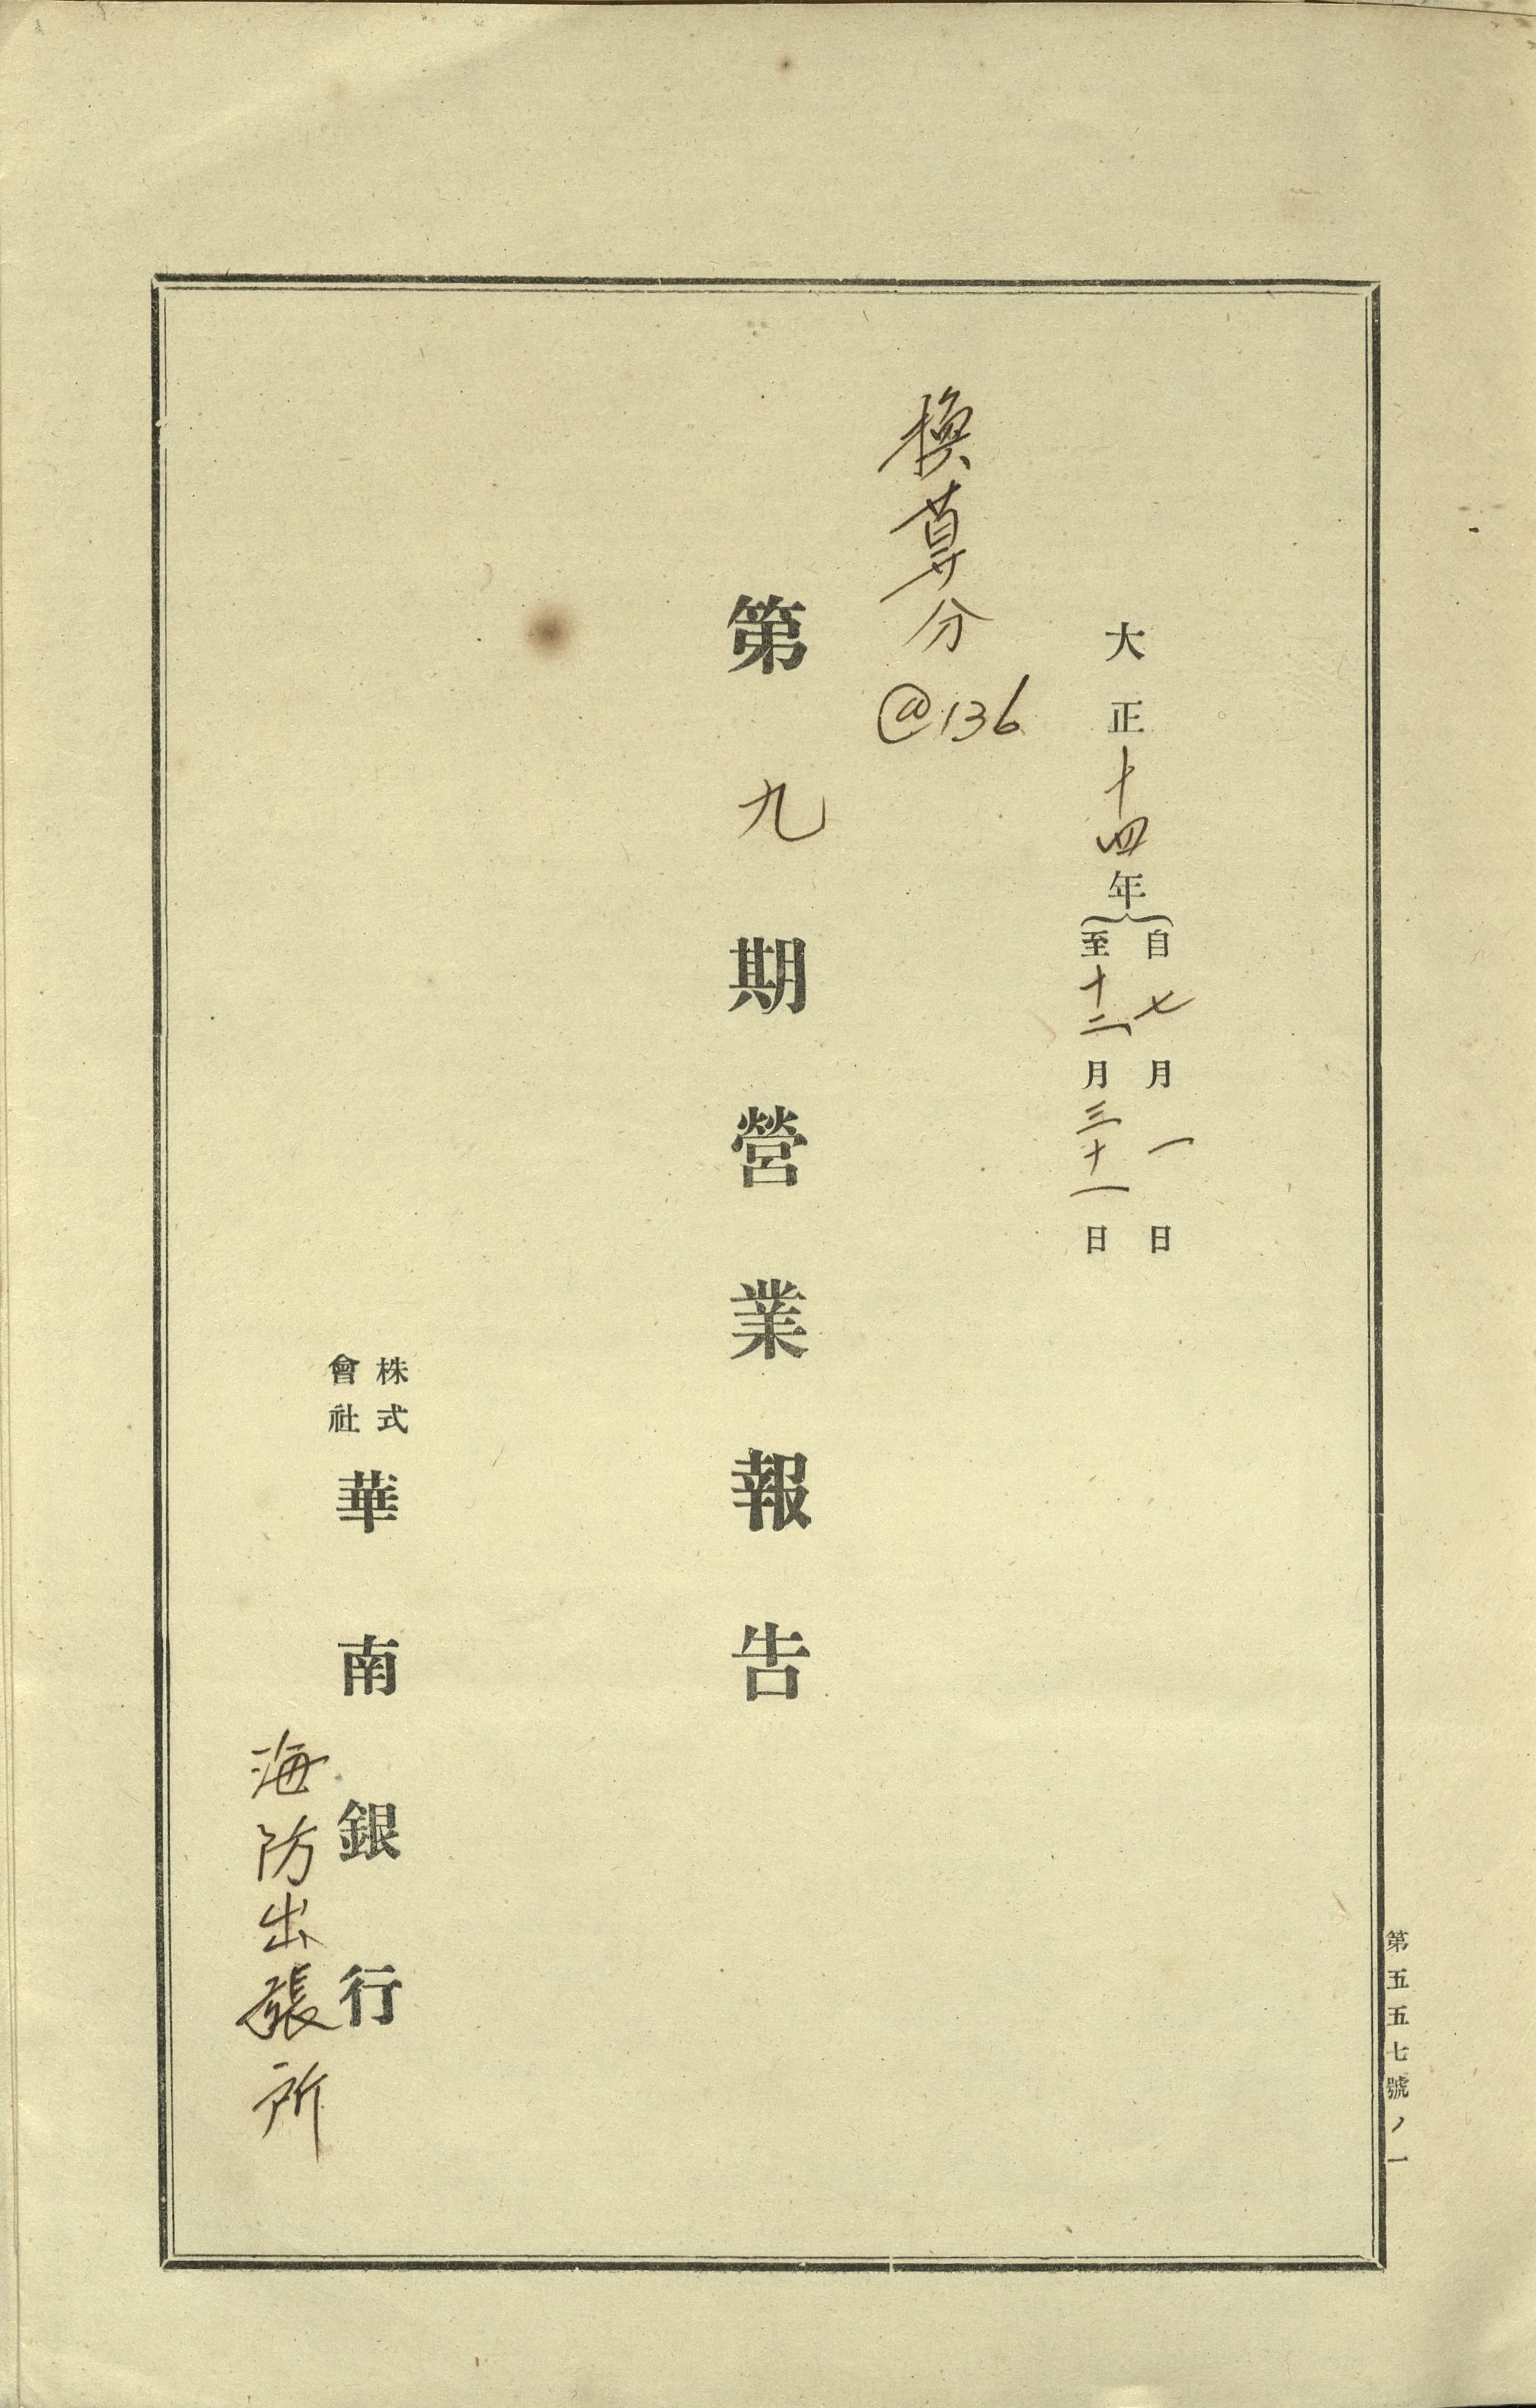 大正十四年
自七月一日
至十二月三十一日
換算分
@136
第九期營業報告
株式會社
華南銀行
海防出張所
第五五七號ノ一